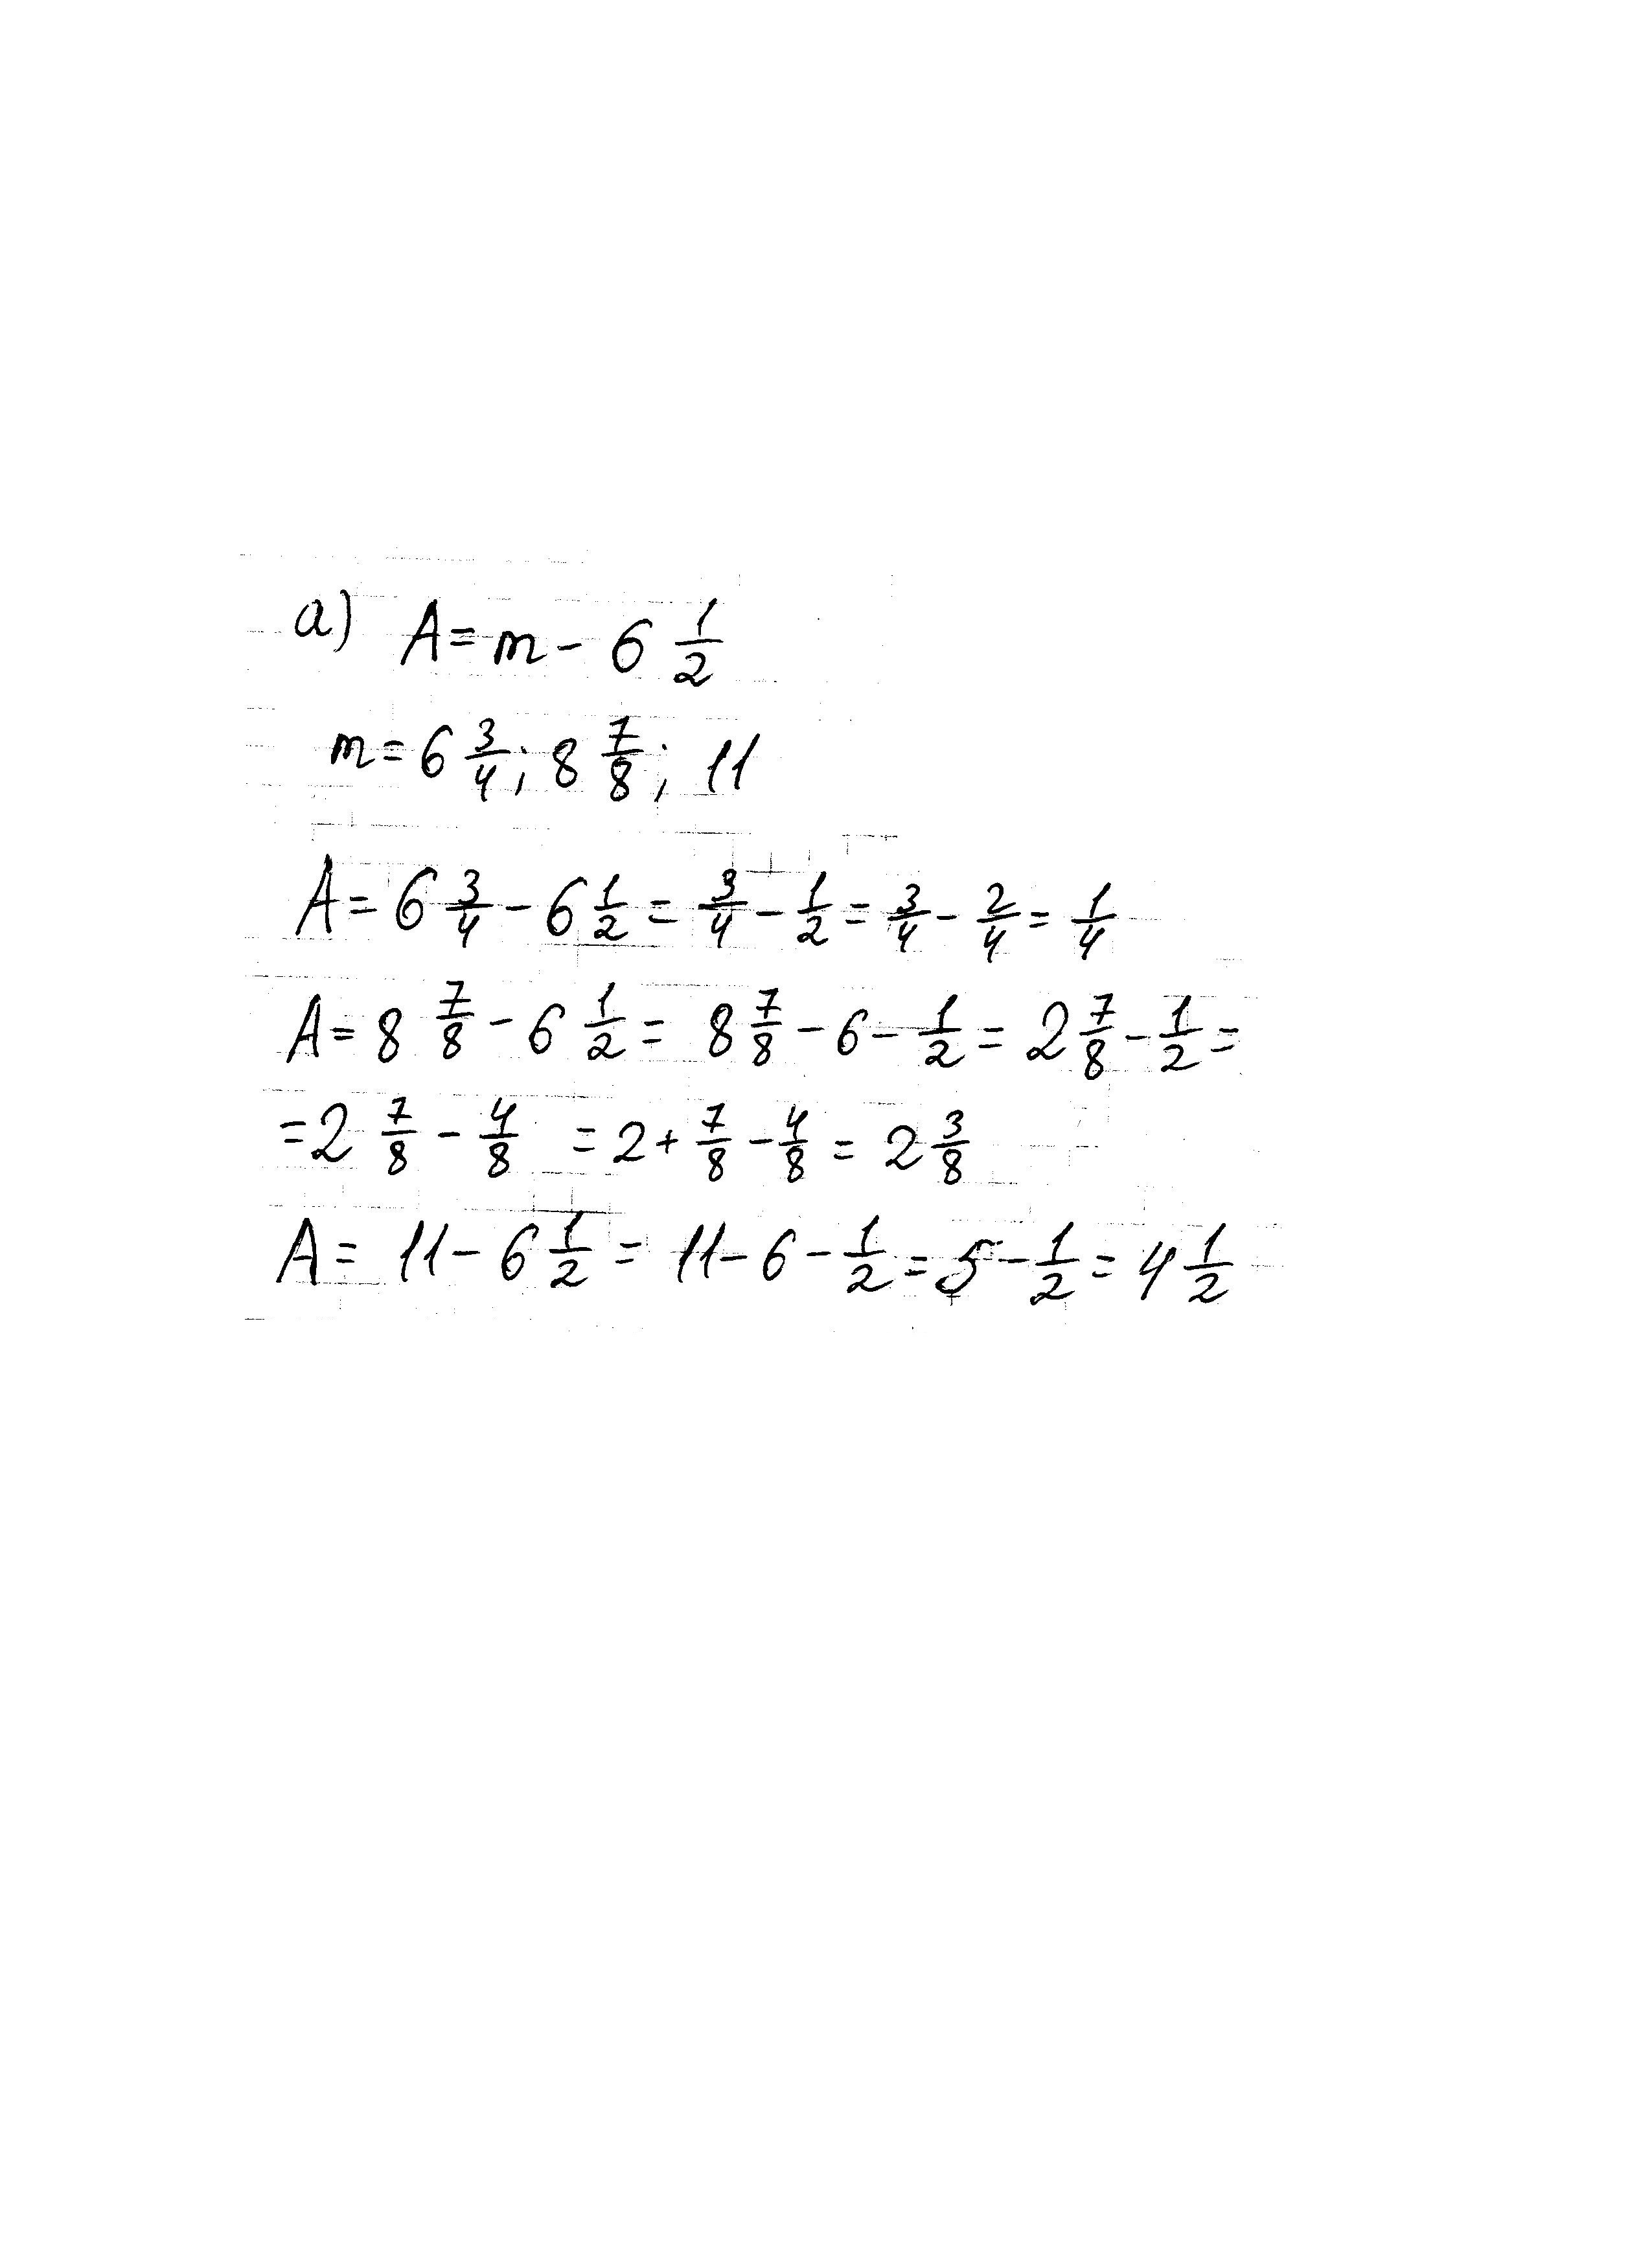 а) A = m - 6 1/2
m = 6 3/4; 8 7/8; 11
A = 6 3/4 - 6 1/2 = 3/4 - 1/2 = 3/4 - 2/4 = 1/4
A = 8 7/8 - 6 1/2 = 8 7/8 - 6 - 1/2 = 2 7/8 - 1/2 =
= 2 7/8 - 4/8 = 2 + 7/8 - 4/8 = 2 3/8
A = 11 - 6 1/2 = 11 - 6 - 1/2 = 5 - 1/2 = 4 1/2